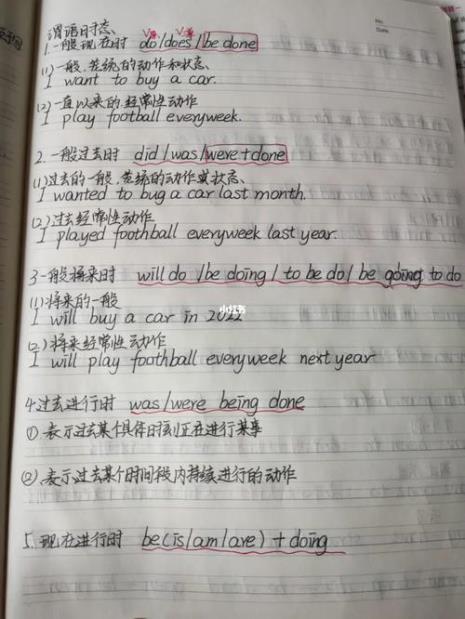 谓语时态、
V原 V三单
1.一般现在时 do/does/be done
(1)一般、笼统的动作和状态、
I want to buy a car.
(2)一直以来的,经常性动作
I play football everyweek.
2.一般过去时 did/was/were+done
(1)过去的一般,笼统的动作或状态、
I wanted to bug a car last month.
(2)过去经常性动作
I played foothball everyweek last year.
3一般将来时 will do /be doing / to be do / be going to do
(1)将来的一般
I will buy a car in 2022
小红书
(2)将来经常性动作
I will play foothball everyweek next year
4过去进行时 was/were being done
①.表示过去某个具体时刻正在进行某事
②.表示过去某个时间段内持续进行的动作
5.现在进行时 be(is/am/are)+doing
No.
Date